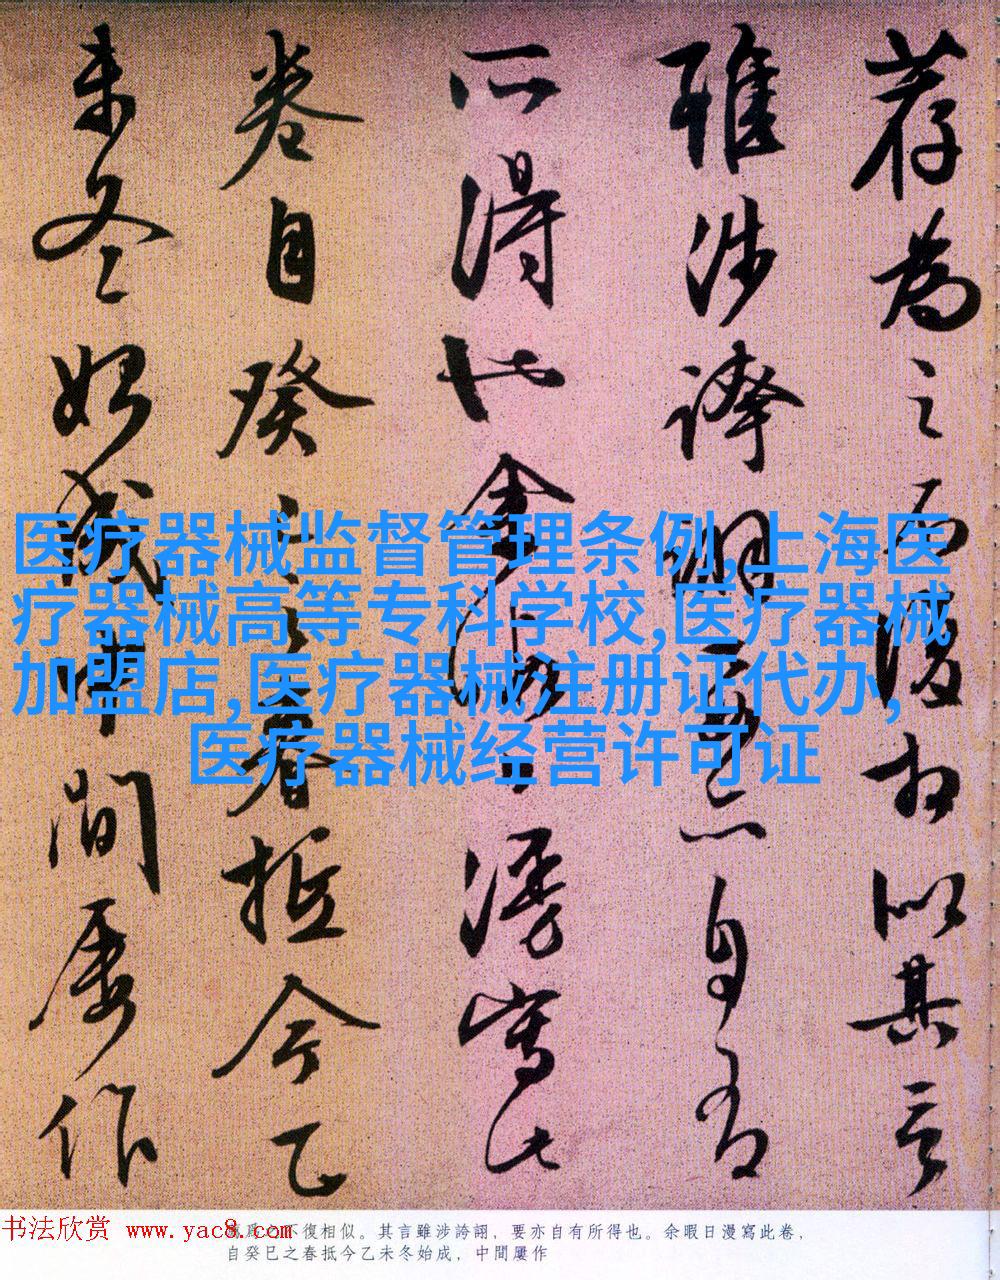 荐為之不復相似其言
雖涉誇詡要亦自有
所得也余暇日漫寫此
卷自癸巳之春抵今乙
未冬始成中間屢作
医疗器械监督管理条例,上海医
疗器械高等专科学校,医疗器械
加盟店,医疗器械注册证代办,
医疗器械经营许可证
书法欣赏 www.yac8.com
薦爲之不復相似。其言雖涉誇詡，要亦自有所得也。余暇日漫寫此卷，
自癸巳之春抵今乙未冬始成，中間屢作